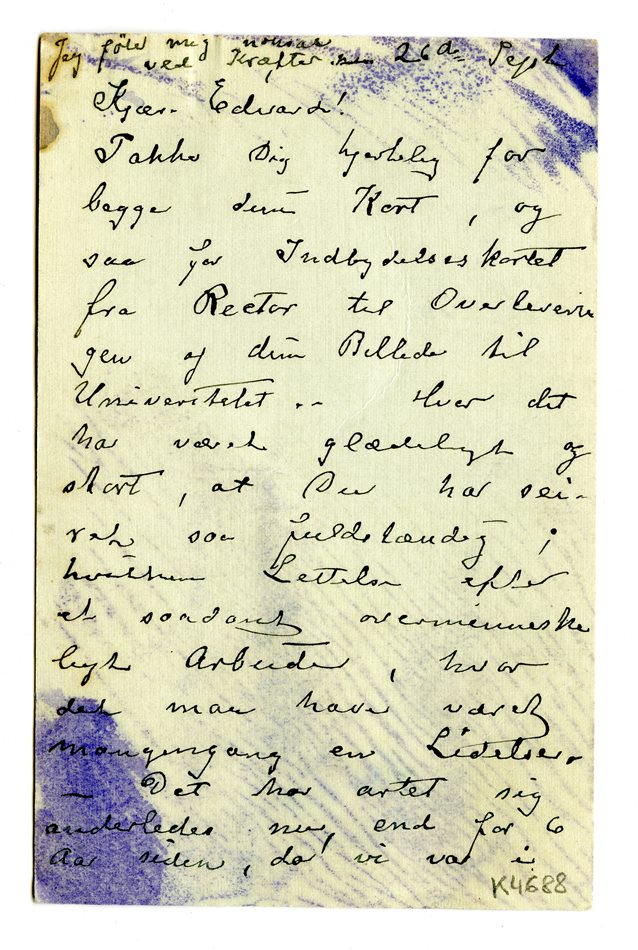 Jeg føler mig
ved Kræfter 26de Sept
Kjære Edvard!
Takke Dig hjertelig for
begge dine Kort, og
saa for Indbydelseskortet
fra Rector til Overleverin
gen af dine Billede til
Universitetet. - Hvor det
har været glædeligt og
stort, at Du har sei-
ret saa fuldstændig;
hvilken Lettelse efter
et saadant overmenneske
ligt Arbeide, hvor
det maa have været
mangengang en Lidelse.
— Det har artet sig
anderledes nu, end for 6
Aar siden, da vi var i
K4688